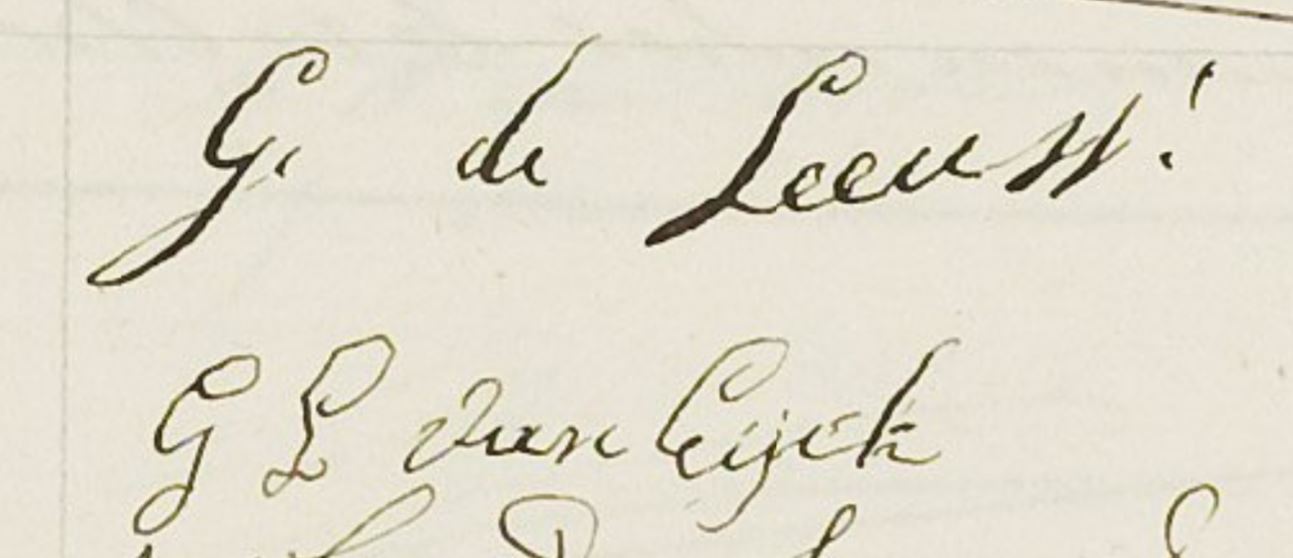 G. de Leeuw!
G L van Eijck